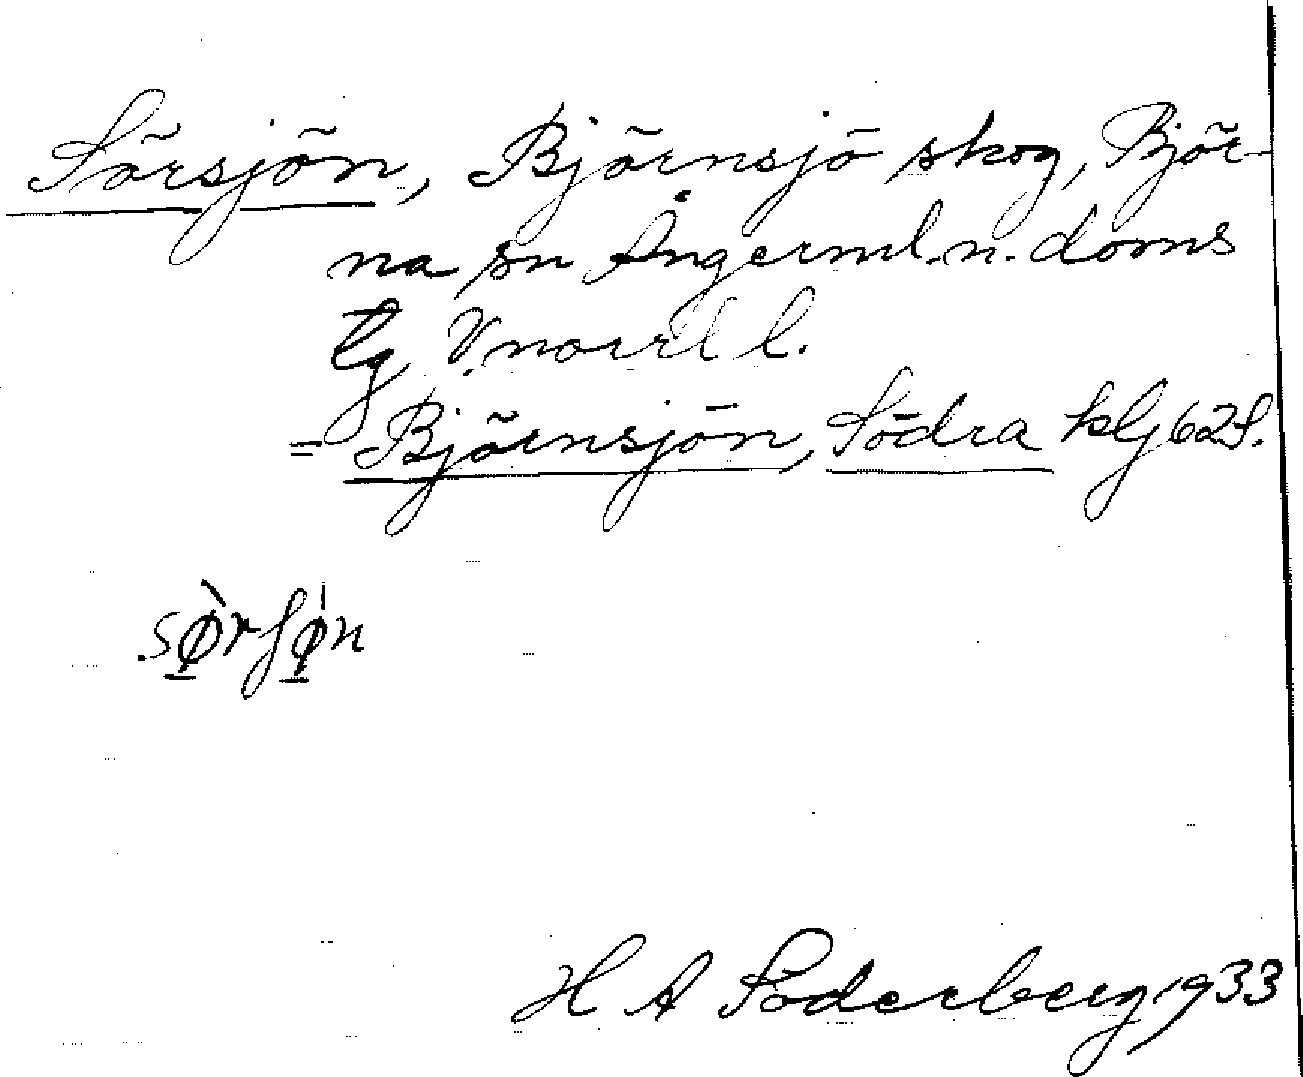 Sörsjön, Björnsjö skog, Björ-
na sn Ångerml. n. doms
tg, V.norrl l.
= Björnsjön, Södra klj 62 S.
sø̀rʃø̀n
H A Söderberg 1933